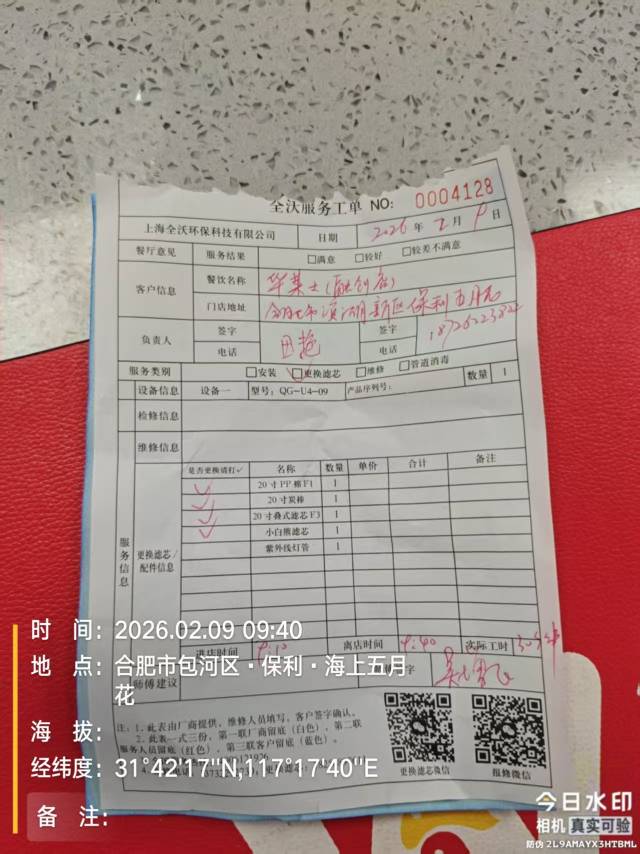 全沃服务工单 NO: 0004128
上海全沃环保科技有限公司 日期 2026年 2月 9日
餐厅意见 服务结果 □满意 □较好 □较差不满意
客户信息 餐饮名称 华莱士(融创店)
门店地址 合肥市滨湖新区保利五月花
负责人 签字 田艳 签字
电话 电话
服务类别 □安装 □更换滤芯 □维修 □管道消毒
设备信息 设备一 型号: QG-U4-09 产品序列号: 数量 1
检修信息
维修信息
服务信息
更换滤芯/配件信息
是否更换请打✓ 名称 数量 单价 合计 备注
✓ 20寸PP棉F1 1
✓ 20寸炭棒 1
✓ 20寸叠式滤芯F3 1
✓ 小白熊滤芯 1
紫外线灯管 1
进店时间 9:10 离店时间 9:40 实际工时 30分钟
师傅建议 字
注: 1. 此表由厂商提供, 维修人员填写, 客户签字确认。
2. 此表一式三份, 第一联厂商留底(白色), 第二联
服务人员留底(红色), 第三联客户留底(蓝色)。
更换滤芯微信 报修微信
时 间: 2026.02.09 09:40
地 点: 合肥市包河区·保利·海上五月
花
海 拔:
经纬度: 31°42'17"N,117°17'40"E
备 注:
今日水印
相机 真实可验
防伪 2L9AMAYX3HTBML